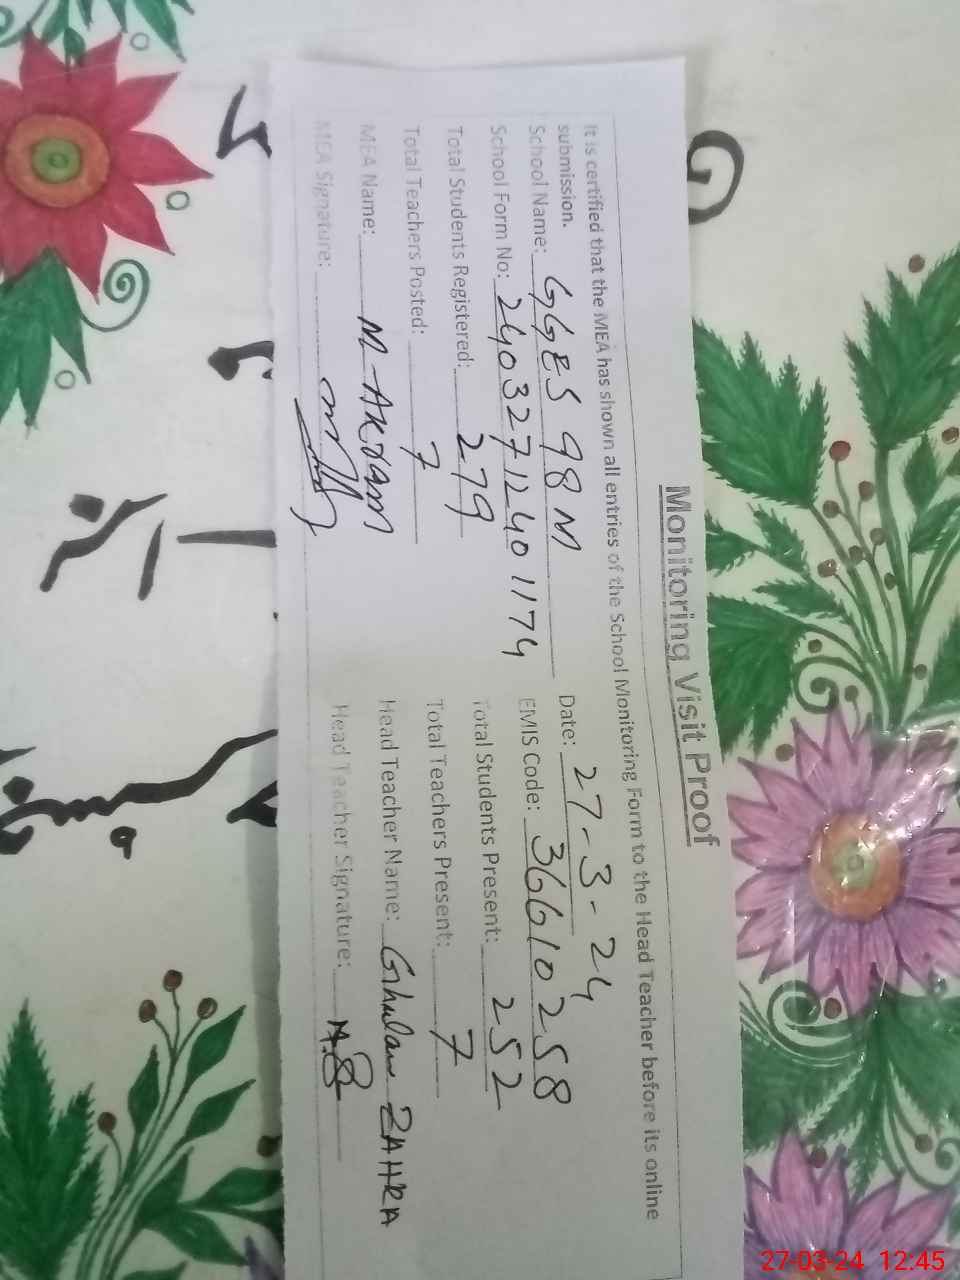 Monitoring Visit Proof
It is certified that the MEA has shown all entries of the School Monitoring Form to the Head Teacher before its online
submission.
School Name: GGES 98 M Date: 27-3-24
School Form No: 2403271240 1174 EMIS Code: 36610258
Total Students Registered: 279 Total Students Present: 252
Total Teachers Posted: 7 Total Teachers Present: 7
MEA Name: M-AKram Head Teacher Name: Ghulam ZAHRA
MEA Signature: Head Teacher Signature:
27-03-24 12:45